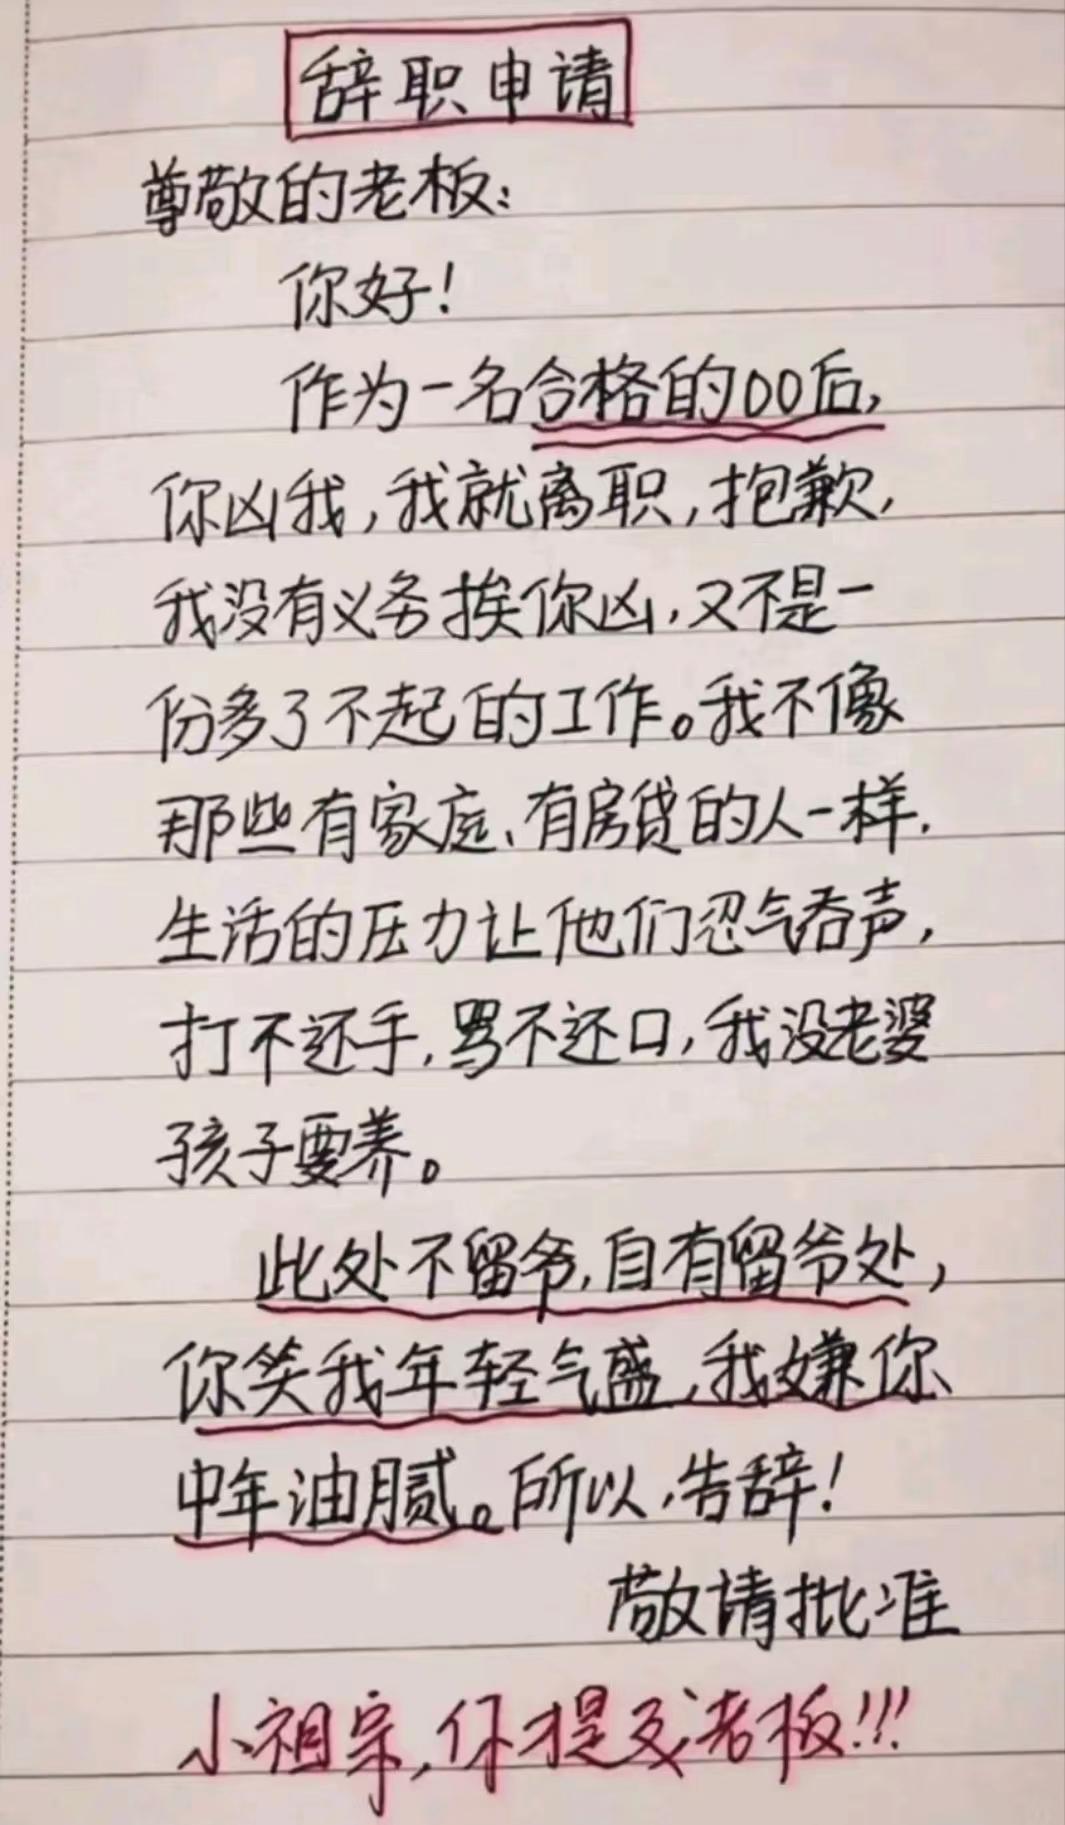 辞职申请
尊敬的老板:
你好!
作为一名合格的00后,
你凶我,我就离职,抱歉,
我没有义务挨你凶,又不是一
份多了不起的工作。我不像
那些有家庭、有房贷的人一样,
生活的压力让他们忍气吞声,
打不还手,骂不还口,我没老婆
孩子要养。
此处不留爷,自有留爷处,
你笑我年轻气盛,我嫌你
中年油腻。所以,告辞!
敬请批准
小祖宗,你才是老板!!!